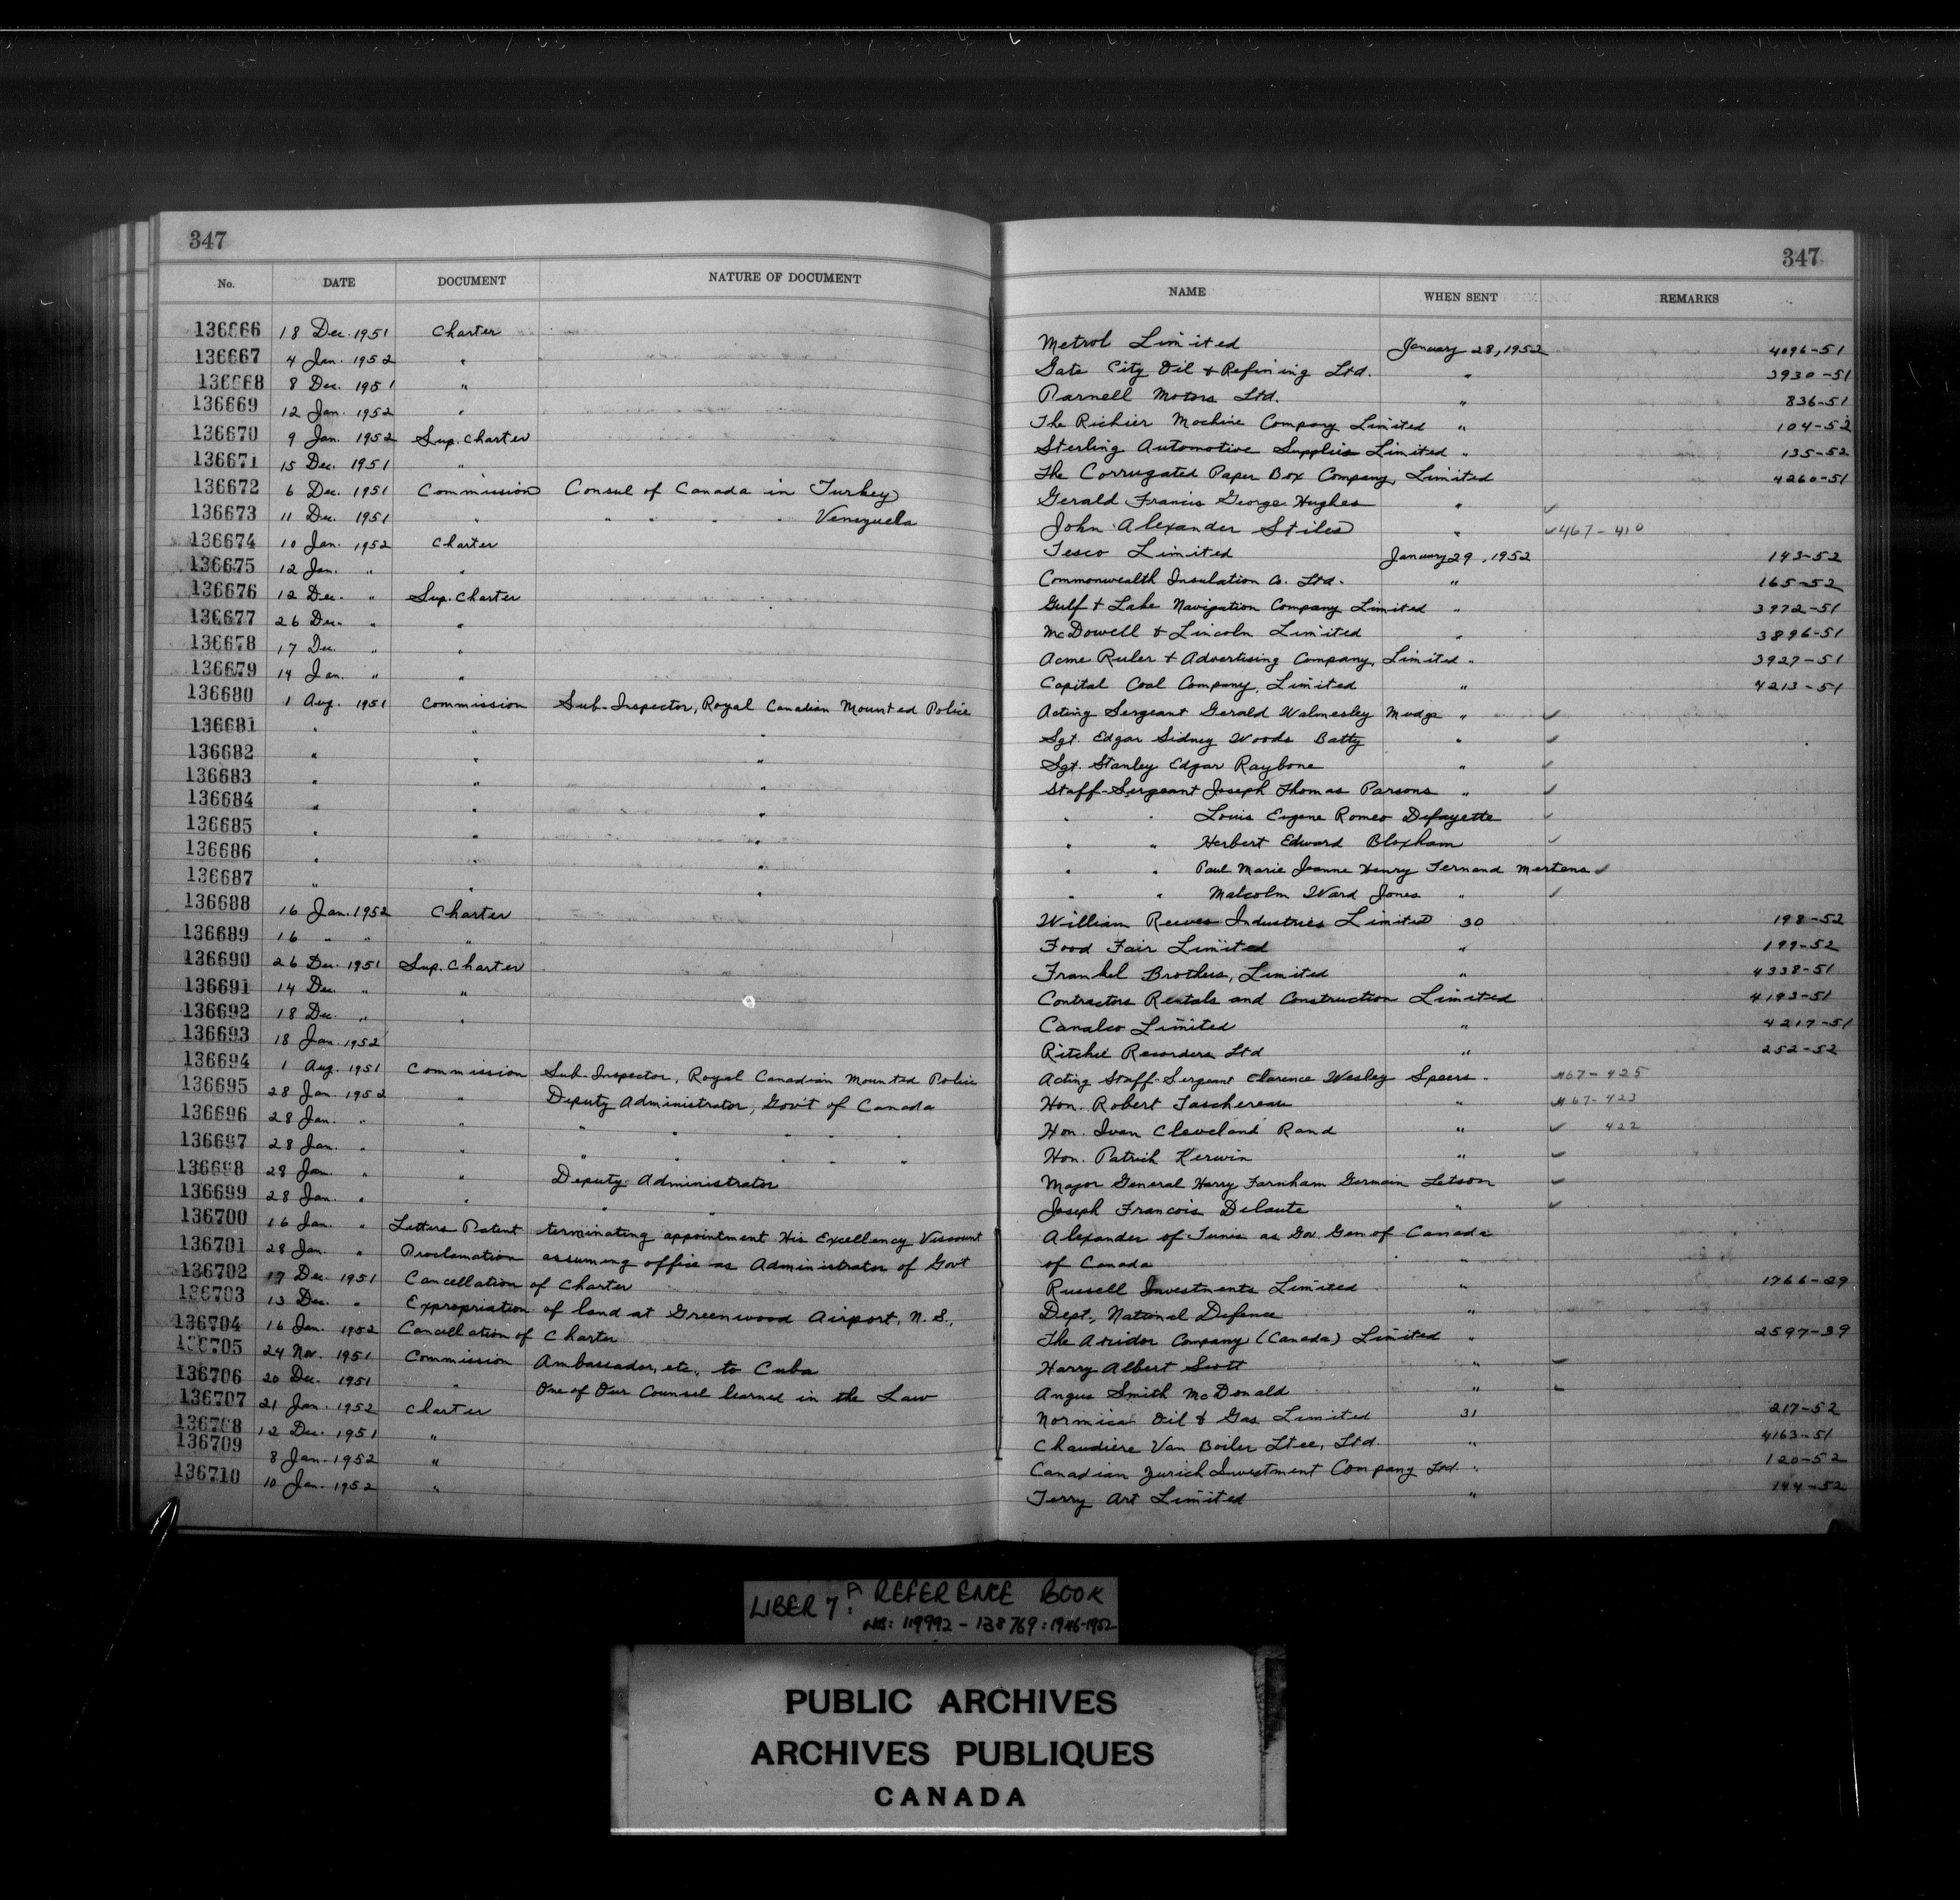 347 347
No. DATE DOCUMENT NATURE OF DOCUMENT NAME WHEN SENT REMARKS
136666 18 Dec. 1951 Charter Metrol Limited January 28, 1952 4096-51
136667 4 Jan. 1952 " Gate City Oil & Refining Ltd. " 3930-51
136668 8 Dec. 1951 " Parnell Motors Ltd. " 836-51
136669 12 Jan. 1952 " The Richier Machine Company Limited " 104-52
136670 9 Jan. 1952 Sup. Charter Sterling Automotive Supplies Limited " 135-52
136671 15 Dec. 1951 " The Corrugated Paper Box Company, Limited 4260-51
136672 6 Dec. 1951 Commission Consul of Canada in Turkey Gerald Francis George Hughes " ✓
136673 11 Dec. 1951 " " " " " Venezuela John Alexander Stiles " ✓467-410
136674 10 Jan. 1952 Charter Tesco Limited January 29, 1952 143-52
136675 12 Jan. " " Commonwealth Insulation Co. Ltd. " 165-52
136676 12 Dec. " Sup. Charter Gulf & Lake Navigation Company Limited " 3972-51
136677 26 Dec. " " McDowell & Lincoln Limited " 3896-51
136678 17 Dec. " " Acme Ruler & Advertising Company, Limited " 3927-51
136679 14 Jan. " " Capital Coal Company, Limited " 4213-51
136680 1 Aug. 1951 Commission Sub-Inspector, Royal Canadian Mounted Police Acting Sergeant Gerald Walmesley Mudge " ✓
136681 " " " Sgt. Edgar Sidney Woods Batty " ✓
136682 " " " Sgt. Stanley Edgar Raybone " ✓
136683 " " " Staff-Sergeant Joseph Thomas Parsons " ✓
136684 " " " " " Louis Eugene Romeo Defayette ✓
136685 " " " " " Herbert Edward Bloxham ✓
136686 " " " " " Paul Marie Jeanne Henry Fernand Mertens ✓
136687 " " " " " Malcolm Ward Jones " ✓
136688 16 Jan. 1952 Charter William Reeves Industries Limited 30 198-52
136689 16 " " " Food Fair Limited " 199-52
136690 26 Dec. 1951 Sup. Charter Frankel Brothers, Limited " 4338-51
136691 14 Dec. " " Contractors Rentals and Construction Limited 4193-51
136692 18 Dec. " " Canalco Limited " 4217-51
136693 18 Jan. 1952 Ritchie Recorders Ltd " 252-52
136694 1 Aug. 1951 Commission Sub-Inspector, Royal Canadian Mounted Police Acting Staff-Sergeant Clarence Wesley Speers " 467-425
136695 28 Jan. 1952 " Deputy Administrator, Gov't of Canada Hon. Robert Taschereau " 467-423
136696 28 Jan. " " " " " " Hon. Ivan Cleveland Rand " ✓ 422
136697 28 Jan. " " " " " " " Hon. Patrick Kerwin " ✓
136698 28 Jan. " " Deputy Administrator Major General Harry Farnham Germain Letson ✓
136699 28 Jan. " " " " Joseph Francois Delaute " ✓
136700 16 Jan. " Letters Patent terminating appointment His Excellency Viscount Alexander of Tunis as Gov. Gen of Canada
136701 28 Jan. " Proclamation assuming office as Administrator of Gov't of Canada "
136702 17 Dec. 1951 Cancellation of Charter Russell Investments Limited " 1766-29
136703 13 Dec. " Expropriation of land at Greenwood Airport, N.S., Dept., National Defence "
136704 16 Jan. 1952 Cancellation of Charter The Aridor Company (Canada) Limited " 2597-39
136705 24 Nov. 1951 Commission Ambassador, etc., to Cuba Harry Albert Scott " ✓
136706 20 Dec. 1951 " One of Our Counsel learned in the Law Angus Smith McDonald " ✓
136707 21 Jan. 1952 Charter Normica Oil & Gas Limited 31 217-52
136708 12 Dec. 1951 " Chaudiere Van Boiler Ltee, Ltd. " 4163-51
136709 8 Jan. 1952 " Canadian Zurich Investment Company Ltd. " 120-52
136710 10 Jan. 1952 " Terry Art Limited " 144-52
LIBER 7A: REFERENCE BOOK
NB: 119992 - 138769: 1946-1952
PUBLIC ARCHIVES
ARCHIVES PUBLIQUES
CANADA